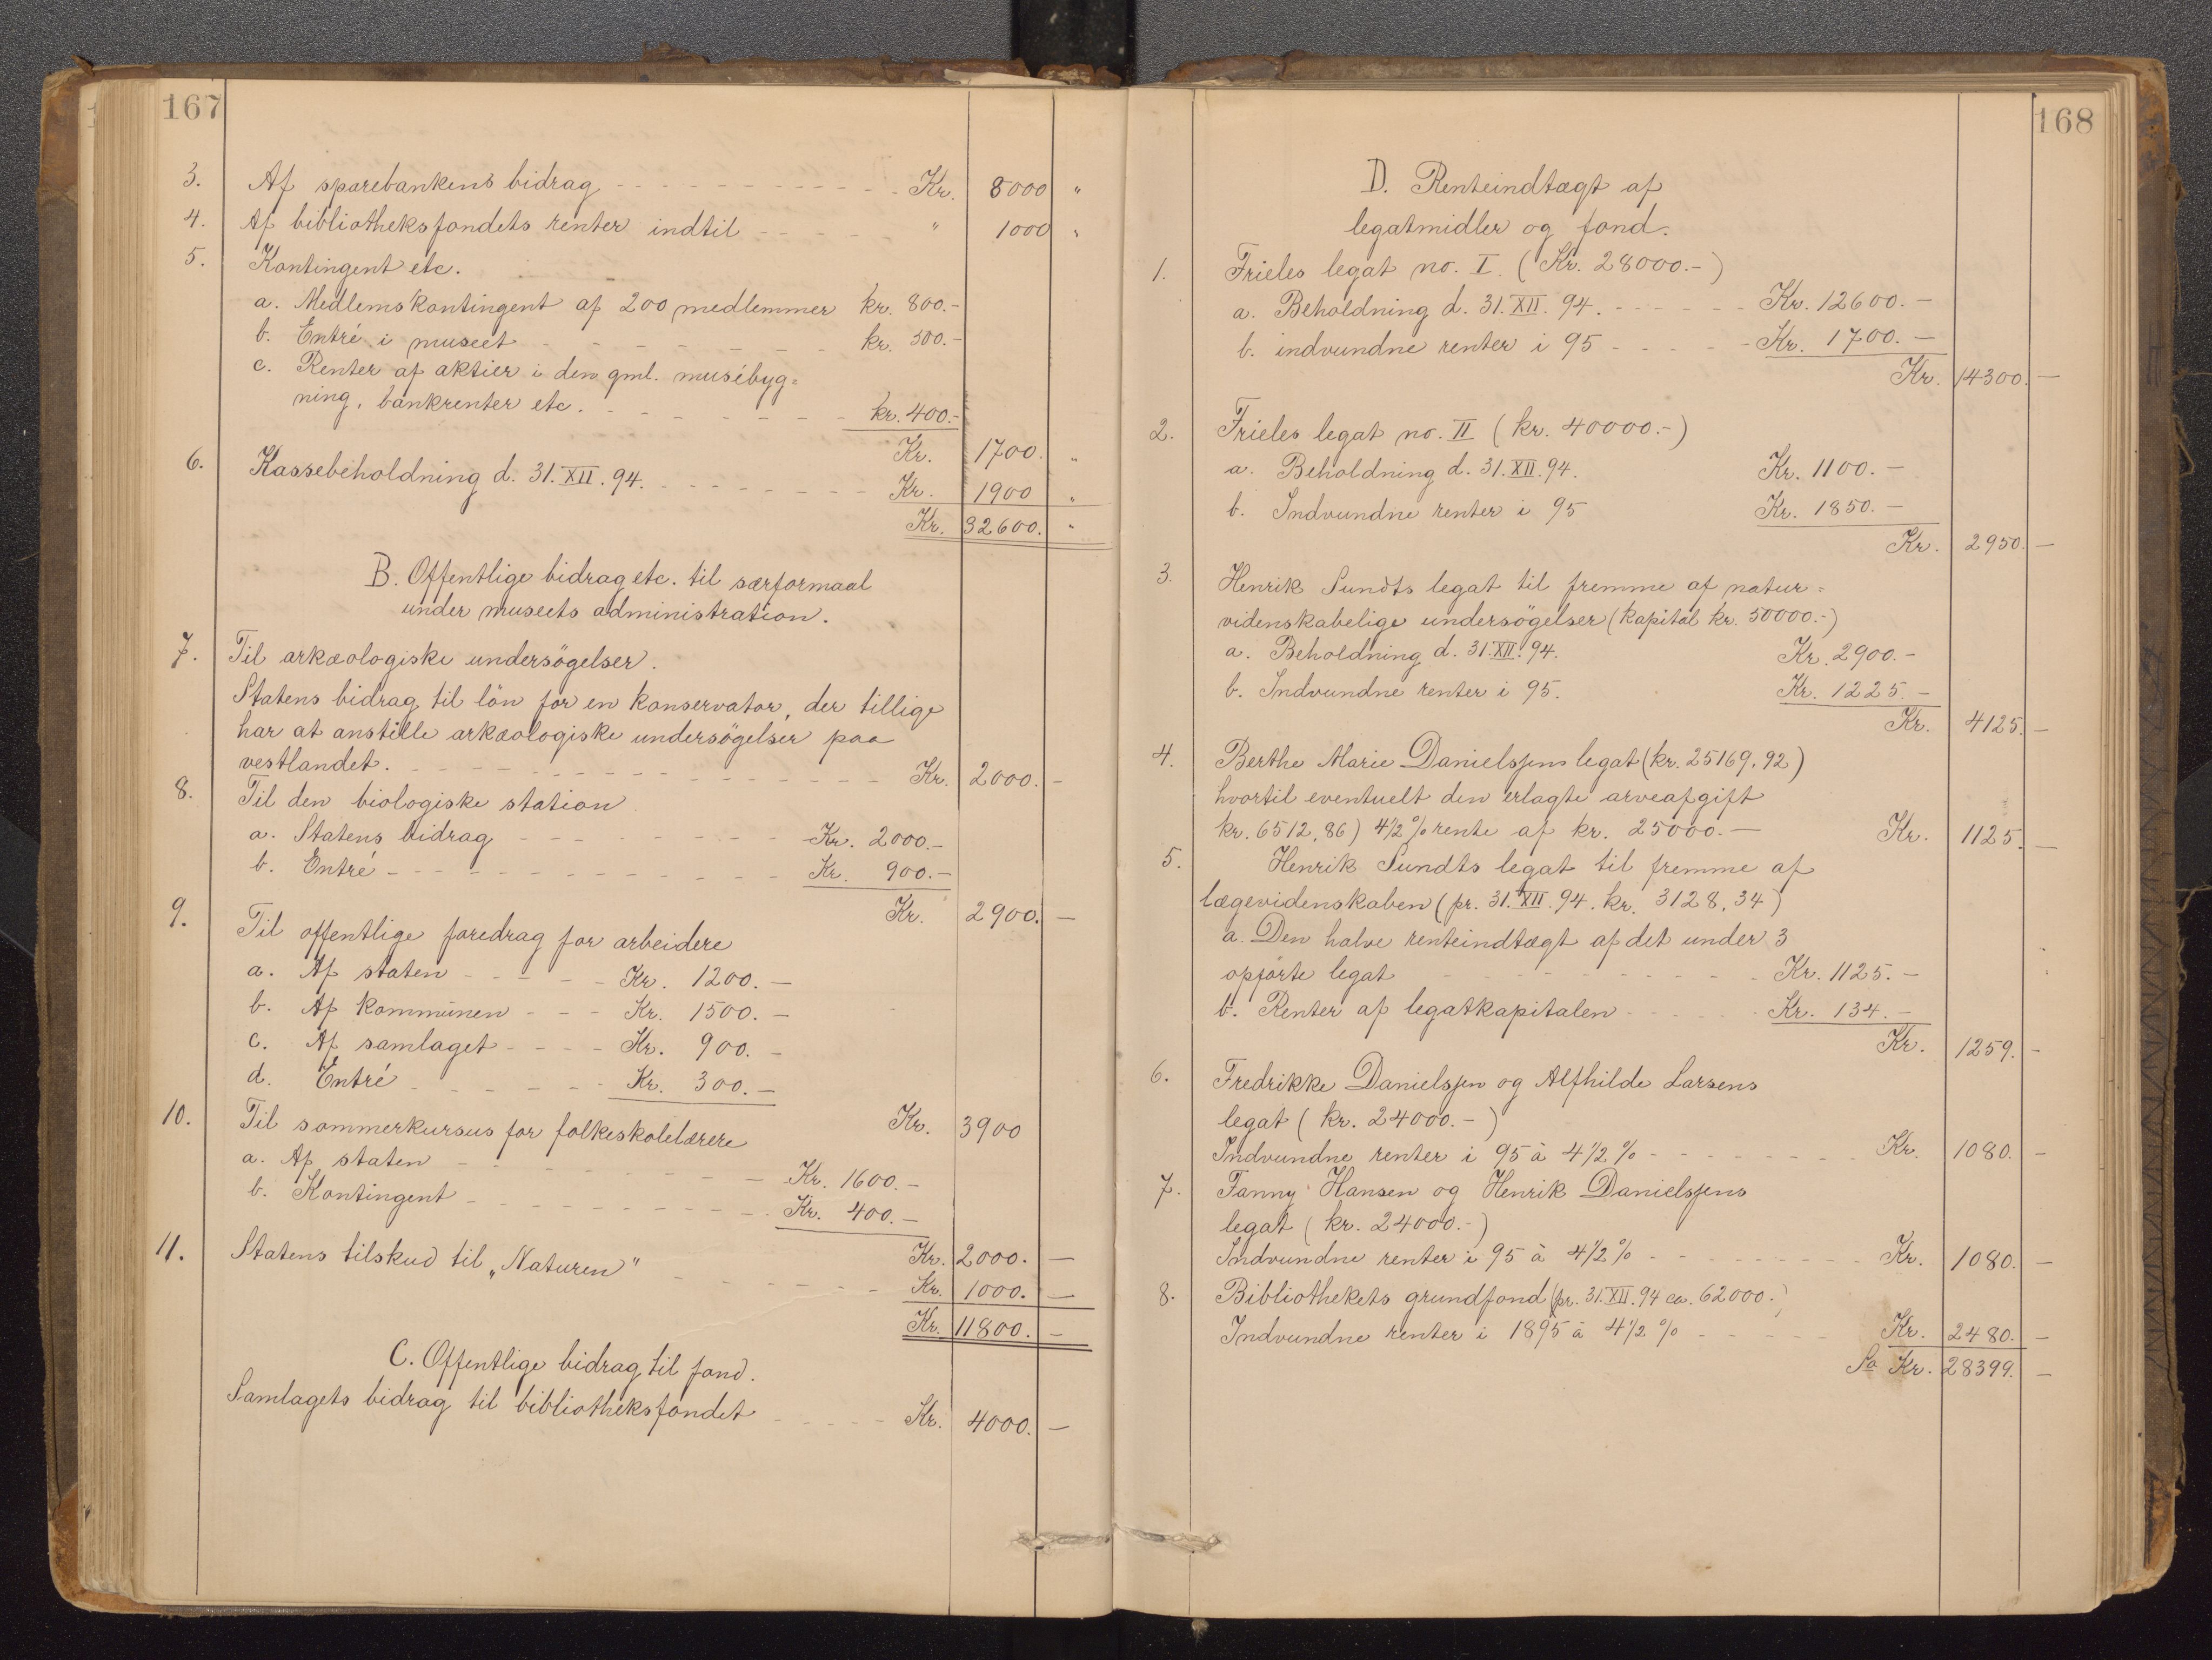 167
3. Af sparebankens bidrag Kr. 8000 "
4. Af bibliotheksfondets renter indtil " 1000 "
5. Kontingent etc.
a. Medlemskontingent af 200 medlemmer kr. 800.-
b. Entré i museet kr. 500.-
c. Renter af aktier i den gml. musébyg=
ning, bankrenter etc. kr. 400.-
Kr. 1700. "
6. Kassebeholdning d. 31.XII.94. Kr. 1900 "
Kr. 32600. "
B. Offentlige bidrag etc. til særformaal
under museets administration.
7. Til arkæologiske undersögelser.
Statens bidrag til lön for en konservator, der tillige
har at anstille arkæologiske undersögelser paa
vestlandet. Kr. 2000. -
8. Til den biologiske station
a. Statens bidrag Kr. 2000.-
b. Entré Kr. 900.-
Kr. 2900. -
9. Til offentlige foredrag for arbeidere
a. Af staten Kr. 1200. -
b. Af kommunen Kr. 1500. -
c. Af samlaget Kr. 900. -
d. Entré Kr. 300. -
Kr. 3900
10. Til sommerkursus for folkeskolelærere
a. Af staten Kr. 1600. -
b. Kontingent Kr. 400. -
Kr. 2000. -
11. Statens tilskud til „Naturen" Kr. 1000. -
Kr. 11800. -
C. Offentlige bidrag til fond.
Samlagets bidrag til bibliotheksfondet Kr. 4000. -
168
D. Renteindtægt af
legatmidler og fond.
1. Frieles legat no. I. (Kr. 28000.-)
a. Beholdning d. 31.XII.94. Kr. 12600. -
b. indvundne renter i 95 Kr. 1700. -
Kr. 14300. -
2. Frieles legat no. II (kr. 40000.-)
a. Beholdning d. 31.XII.94. Kr. 1100. -
b. Indvundne renter i 95 Kr. 1850. -
Kr. 2950. -
3. Henrik Sundts legat til fremme af natur=
videnskabelige undersögelser (kapital kr. 50000.-)
a. Beholdning d. 31.XII.94. Kr. 2900. -
b. Indvundne renter i 95. Kr. 1225. -
Kr. 4125. -
4. Berthe Marie Danielssens legat (kr. 25169.92)
hvortil eventuelt den erlagte arveafgift
kr. 6512,86) 4½ % rente af kr. 25000. - Kr. 1125. -
5. Henrik Sundts legat til fremme af
lægevidenskaben (pr. 31.XII.94. kr. 3128,34)
a. Den halve renteindtægt af det under 3
opförte legat Kr. 1125. -
b. Renter af legatkapitalen Kr. 134. -
Kr. 1259. -
6. Fredrikke Danielssen og Alfhilde Larsens
legat (kr. 24000.-)
Indvundne renter i 95 à 4½ % Kr. 1080. -
7. Fanny Hansen og Henrik Danielssens
legat (kr. 24000.-)
Indvundne renter i 95 à 4½ % Kr. 1080. -
8. Bibliothekets grundfond (pr. 31.XII.94 ca. 62000.)
Indvundne renter i 1895 à 4½ % Kr. 2480. -
Sa Kr. 28399. -